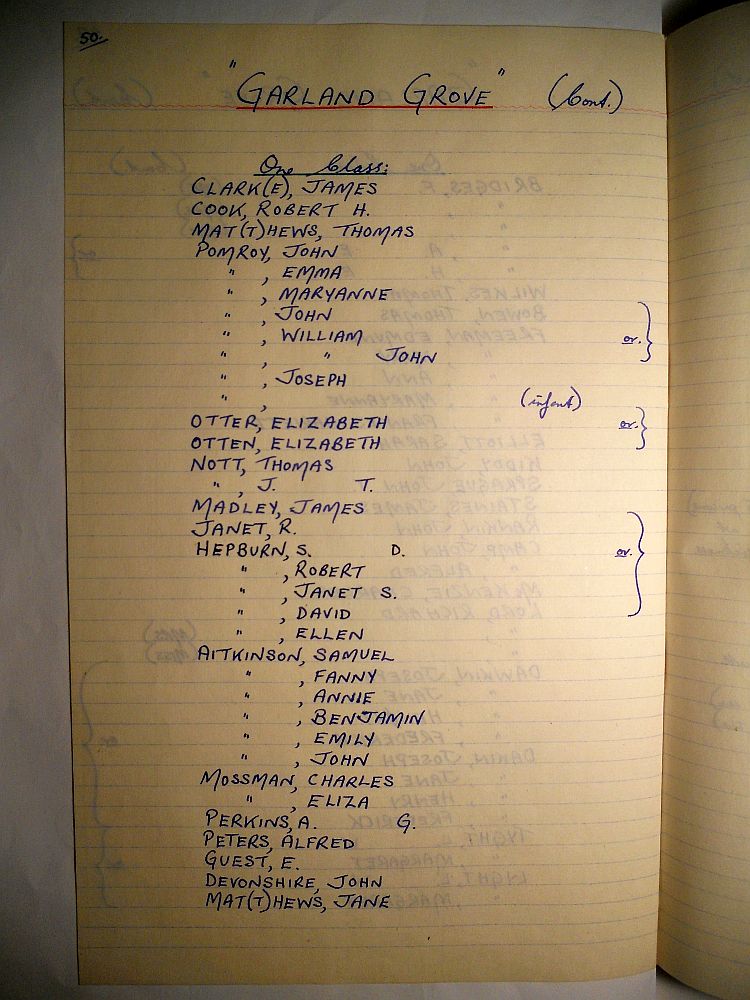 50.
"GARLAND GROVE" (Cont.)
One Class:
CLARK(E), JAMES
COOK, ROBERT H.
MAT(T)HEWS, THOMAS
POMROY, JOHN
" , EMMA
" , MARYANNE
" , JOHN
" , WILLIAM or.
" , " JOHN
" , JOSEPH
" , (infant)
OTTER, ELIZABETH or.
OTTEN, ELIZABETH
NOTT, THOMAS
" , J. T.
MADLEY, JAMES
JANET, R.
HEPBURN, S. D. or.
" , ROBERT
" , JANET S.
" , DAVID
" , ELLEN
AITKINSON, SAMUEL
" , FANNY
" , ANNIE
" , BENJAMIN
" , EMILY
" , JOHN
MOSSMAN, CHARLES
" , ELIZA
PERKINS, A. G.
PETERS, ALFRED
GUEST, E.
DEVONSHIRE, JOHN
MAT(T)HEWS, JANE